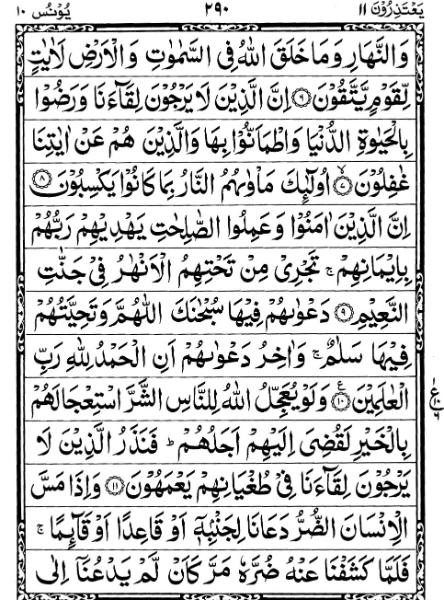 يَعْتَذِرُوْنَ ١١ ٢٩٠ يُوْنُس ١٠
وَالنَّهَارِ وَمَا خَلَقَ اللّٰهُ فِى السَّمٰوٰتِ وَالْاَرْضِ لَاٰيٰتٍ
لِّقَوْمٍ يَّتَّقُوْنَ ۝٦ اِنَّ الَّذِيْنَ لَا يَرْجُوْنَ لِقَآءَنَا وَرَضُوْا
بِالْحَيٰوةِ الدُّنْيَا وَاطْمَاَنُّوْا بِهَا وَالَّذِيْنَ هُمْ عَنْ اٰيٰتِنَا
غٰفِلُوْنَ ۝٧ۙ اُولٰٓئِكَ مَاْوٰىهُمُ النَّارُ بِمَا كَانُوْا يَكْسِبُوْنَ ۝٨
اِنَّ الَّذِيْنَ اٰمَنُوْا وَعَمِلُوا الصّٰلِحٰتِ يَهْدِيْهِمْ رَبُّهُمْ
بِاِيْمَانِهِمْ ۚ تَجْرِىْ مِنْ تَحْتِهِمُ الْاَنْهٰرُ فِىْ جَنّٰتِ
النَّعِيْمِ ۝٩ دَعْوٰىهُمْ فِيْهَا سُبْحٰنَكَ اللّٰهُمَّ وَتَحِيَّتُهُمْ
فِيْهَا سَلٰمٌ ۚ وَاٰخِرُ دَعْوٰىهُمْ اَنِ الْحَمْدُ لِلّٰهِ رَبِّ
الْعٰلَمِيْنَ ۝١٠ع وَلَوْ يُعَجِّلُ اللّٰهُ لِلنَّاسِ الشَّرَّ اسْتِعْجَالَهُمْ
بِالْخَيْرِ لَقُضِىَ اِلَيْهِمْ اَجَلُهُمْ ؕ فَنَذَرُ الَّذِيْنَ لَا
يَرْجُوْنَ لِقَآءَنَا فِىْ طُغْيَانِهِمْ يَعْمَهُوْنَ ۝١١ وَاِذَا مَسَّ
الْاِنْسَانَ الضُّرُّ دَعَانَا لِجَنْۢبِهٖۤ اَوْ قَاعِدًا اَوْ قَآئِمًا ۚ
فَلَمَّا كَشَفْنَا عَنْهُ ضُرَّهٗ مَرَّ كَاَنْ لَّمْ يَدْعُنَاۤ اِلٰى